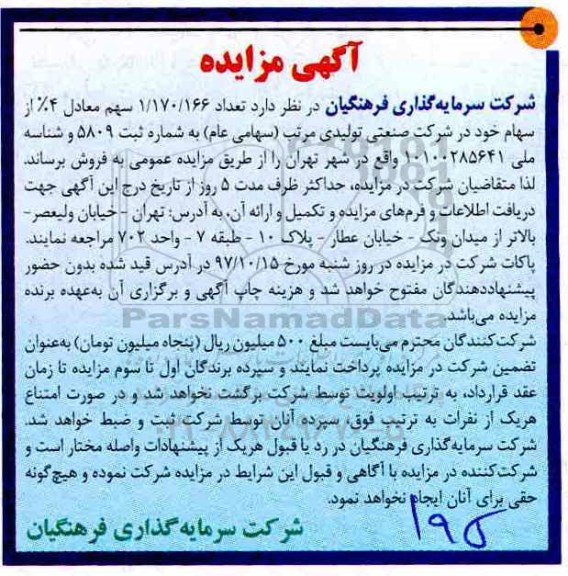 آگهی مزایده
شرکت سرمایه‌گذاری فرهنگیان در نظر دارد تعداد ۱/۱۷۰/۱۶۶ سهم معادل ۴٪ از
سهام خود در شرکت صنعتی تولیدی مرتب (سهامی عام) به شماره ثبت ۵۸۰۹ و شناسه
ملی ۱۰۱۰۰۲۸۵۶۴۱ واقع در شهر تهران را از طریق مزایده عمومی به فروش برساند.
لذا متقاضیان شرکت در مزایده، حداکثر ظرف مدت ۵ روز از تاریخ درج این آگهی جهت
دریافت اطلاعات و فرم‌های مزایده و تکمیل و ارائه آن، به آدرس: تهران - خیابان ولیعصر-
بالاتر از میدان ونک - خیابان عطار - پلاک ۱۰ - طبقه ۷ - واحد ۷۰۲ مراجعه نمایند.
پاکات شرکت در مزایده در روز شنبه مورخ ۹۷/۱۰/۱۵ در آدرس قید شده بدون حضور
پیشنهاددهندگان مفتوح خواهد شد و هزینه چاپ آگهی و برگزاری آن به‌عهده برنده
مزایده می‌باشد.
ParsNamadData
شرکت‌کنندگان محترم می‌بایست مبلغ ۵۰۰ میلیون ریال (پنجاه میلیون تومان) به‌عنوان
تضمین شرکت در مزایده پرداخت نمایند و سپرده برندگان اول تا سوم مزایده تا زمان
عقد قرارداد، به ترتیب اولویت توسط شرکت برگشت نخواهد شد و در صورت امتناع
هریک از نفرات به ترتیب فوق، سپرده آنان توسط شرکت ثبت و ضبط خواهد شد.
شرکت سرمایه‌گذاری فرهنگیان در رد یا قبول هریک از پیشنهادات واصله مختار است و
شرکت‌کننده در مزایده با آگاهی و قبول این شرایط در مزایده شرکت نموده و هیچ‌گونه
حقی برای آنان ایجاد نخواهد نمود.
شرکت سرمایه‌گذاری فرهنگیان